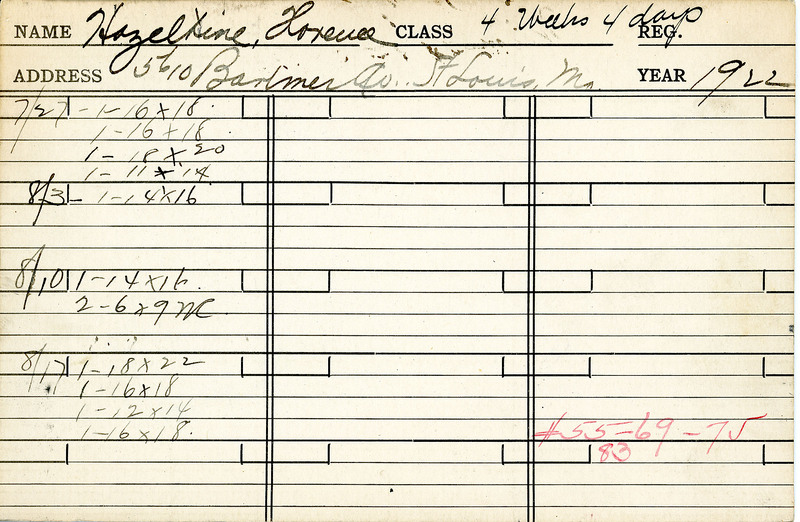 NAME Hazeltine, Florence CLASS 4 Weeks 4 days REG.
ADDRESS 5610 Bartmer Av. St Louis, Mo YEAR 1922
7/27 - 1-16 x 18.
1-16 x 18.
1-18 x 20
1-11 x 14.
8/3 - 1-14 x 16
8/10 1-14 x 16.
2-6 x 9 WC
8/17 1-18 x 22
1-16 x 18
1-12 x 14
1-16 x 18.
#55-69-75
83